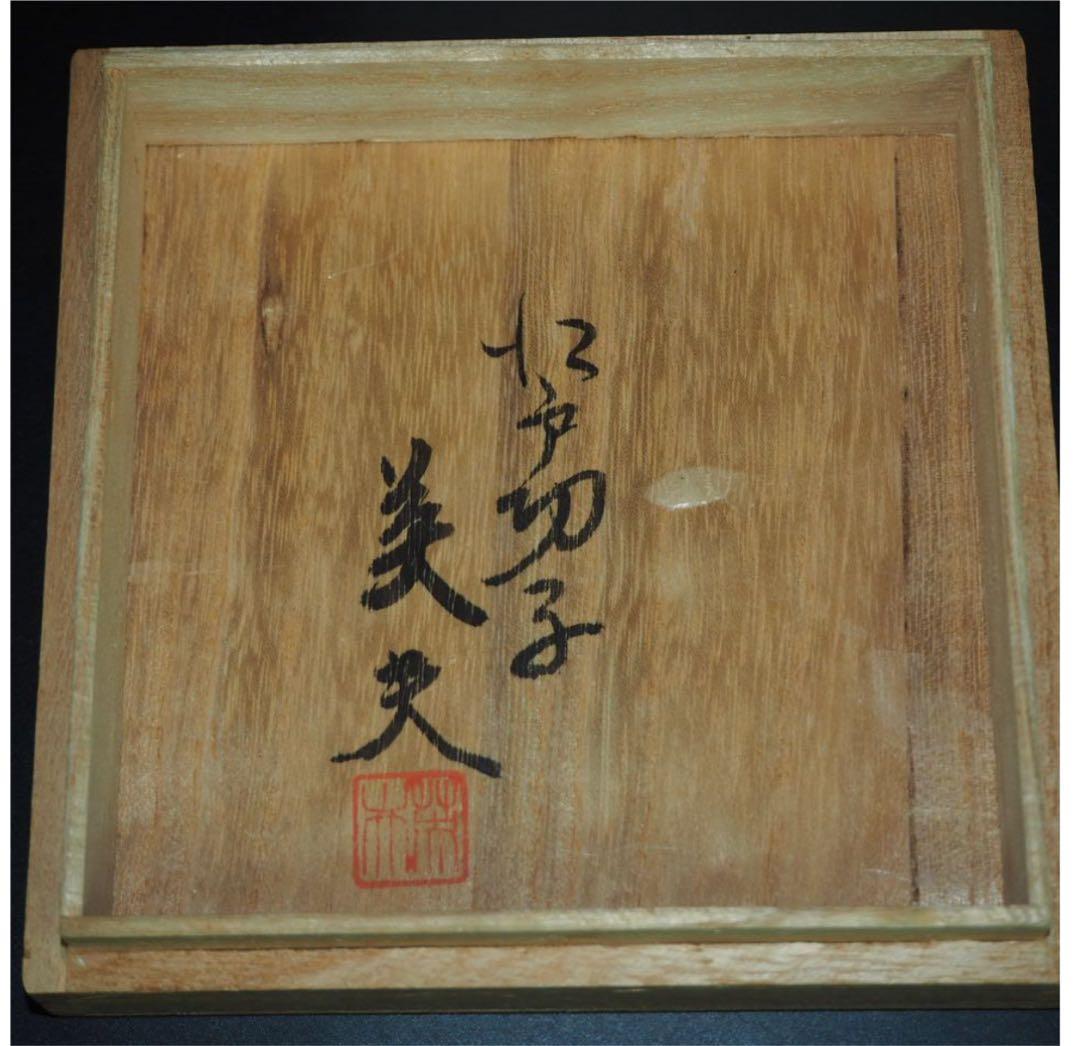 江戸切子
英夫